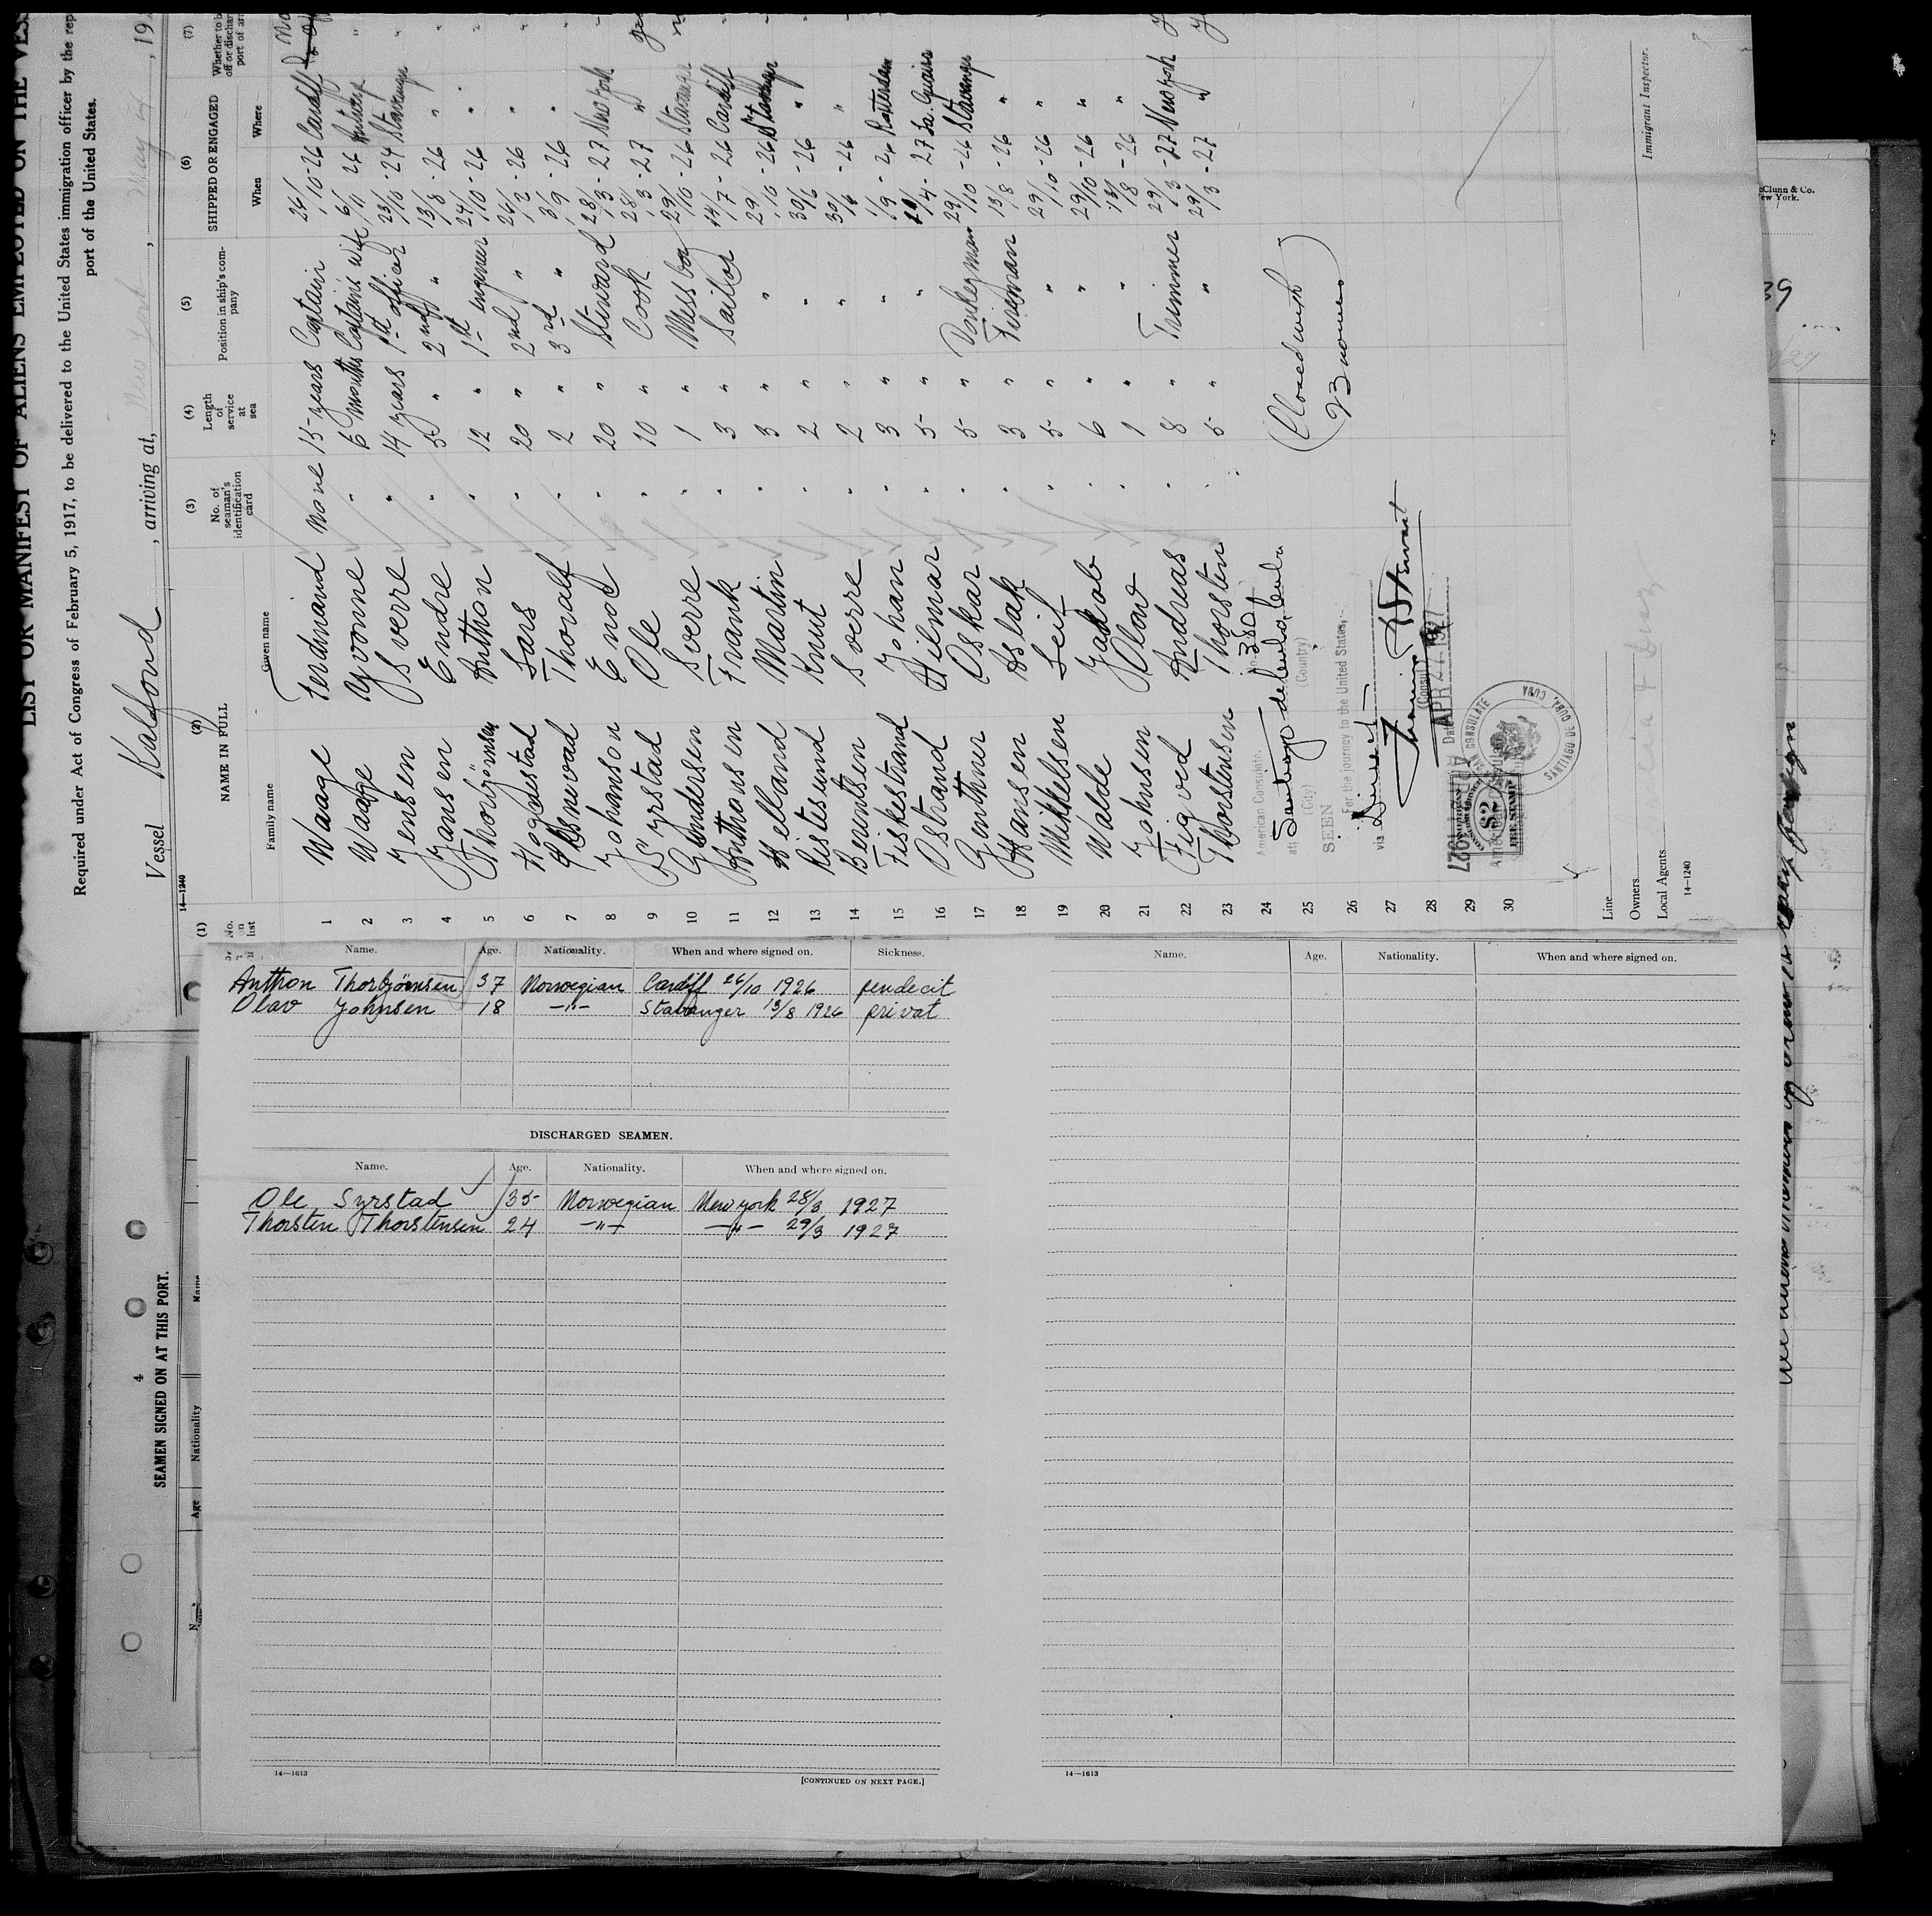 LIST OR MANIFEST OF ALIENS EMPLOYED ON THE VES
Required under Act of Congress of February 5, 1917, to be delivered to the United States immigration officer by the rep
port of the United States.
Vessel Kaldfond, arriving at, New York, May 4, 19
14—1240
(1) (2) (3) (4) (5) (6) (7)
No. on list
NAME IN FULL
Family name Given name
No. of seaman's identification card
Length of service at sea
Position in ship's company
SHIPPED OR ENGAGED
When Where
Whether to be
off or dischar
port of arr
1 Waage Ferdinand None 15 years Captain 26/10-26 Cardiff
2 Waage Yvonne " 6 months Captains wife 6/11 26 Antwerp
3 Jensen Sverre " 14 years 1st officer 23/10-24 Stavanger
4 Jansen Endre " 5 " 2nd " 13/8-26 "
5 Thorbjörnsen Anthon " 12 " 1st engineer 24/10-26 "
6 Hognestad Lars " 20 " 2nd " 24/2-26 "
7 Thoralf " 2 " 3rd " 3/9-26 "
8 Johanson Enod " 20 " Steward 28/3-27 New York
9 Syrstad Ole " 10 " Cook 28/3-27 "
10 Gundersen Sverre " 1 " Mess boy 29/10-26 Stavanger
11 Anthonsen Frank " 3 " Sailor 14/7-26 Cardiff
12 Helland Martin " 3 " " 29/10-26 Stavanger
13 Ristesund Knut " 2 " " 30/6-26 "
14 Berentsen Sverre " 2 " " 30/6-26 "
15 Fiskestrand Johan " 3 " " 1/9-26 Rotterdam
16 Ostrand Hilmar " 5 " " /4-27 La Guaira
17 Genthner Oskar " 5 " Donkeyman 29/10-26 Stavanger
18 Hansen Aslak " 3 " Fireman 13/8-26 "
19 Mikkelsen Leif " 5 " " 29/10-26 "
20 Walde Jakob " 6 " " 29/10-26 "
21 Johnsen Olav " 1 " " 13/8-26 "
22 Figved Andreas " 8 " Trimmer 29/3-27 New York
23 Thorstensen Thorsten " 5 " " 29/3-27 "
24
25
26
27
28
29
30
American Consulate. No. 380
at Santiago de Cuba, Cuba
(City) (Country)
SEEN
For the journey to the United States,
via Direct
(Consul)
Date APR 27 1927
(Closed with
23 names)
AMERICAN CONSULATE
SANTIAGO DE CUBA, CUBA
$2
FEE STAMP
1927
Line
Owners
Local Agents
14—1240
Immigrant Inspector.
Clunn & Co.
ew York.
39
Name. Age. Nationality. When and where signed on. Sickness.
Anthon Thorbjörnsen 37 Norwegian Cardiff 26/10 1926 pendecit
Olav Johnsen 18 —"— Stavanger 13/8 1926 privat
DISCHARGED SEAMEN.
Name. Age. Nationality. When and where signed on.
Ole Syrstad 35 Norwegian New york 28/3 1927
Thorsten Thorstensen 24 —"— —"— 29/3 1927
14—1613
[CONTINUED ON NEXT PAGE.]
Name. Age. Nationality. When and where signed on.
14—1613
4
SEAMEN SIGNED ON AT THIS PORT.
Age Nationality Name